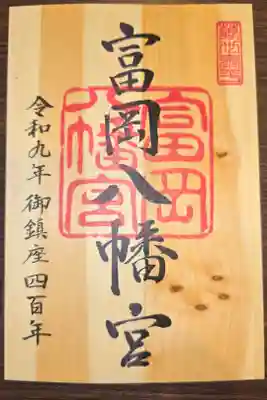 富岡八幡宮
富岡八幡宮
令和九年御鎮座四百年